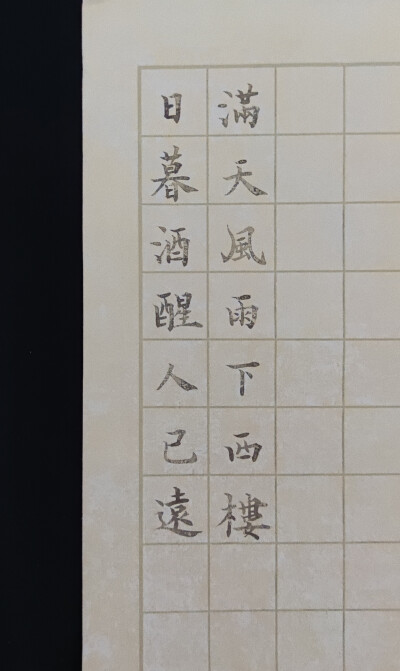 日暮酒醒人已遠
滿天風雨下西樓